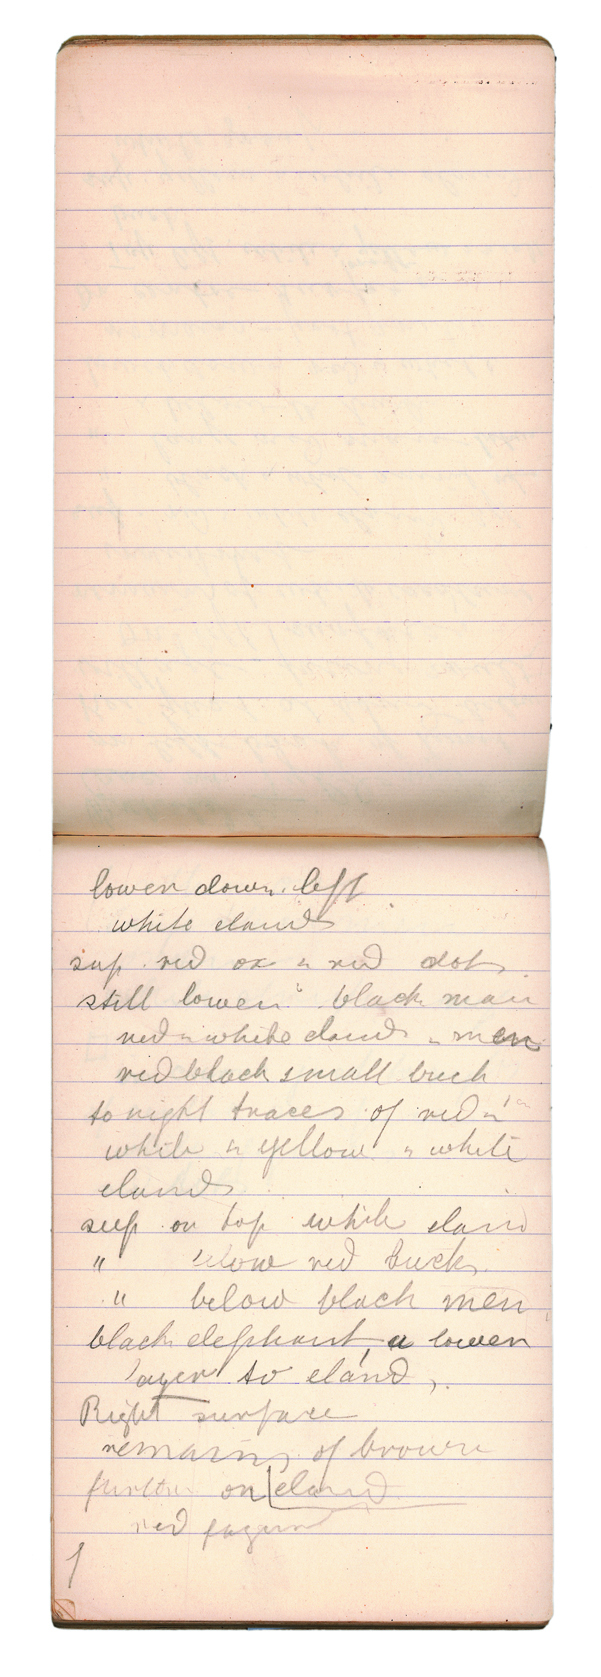 lower down left
white elands
sup red ox " red dots
still lower black man
red " white elands " men
red black small buck
to right traces of red "
white " yellow " white
elands
sup on top white eland
" below red bucks
" below black men
black elephant, a lower
layer to eland,
Right surface
remains of brown
further on eland
red